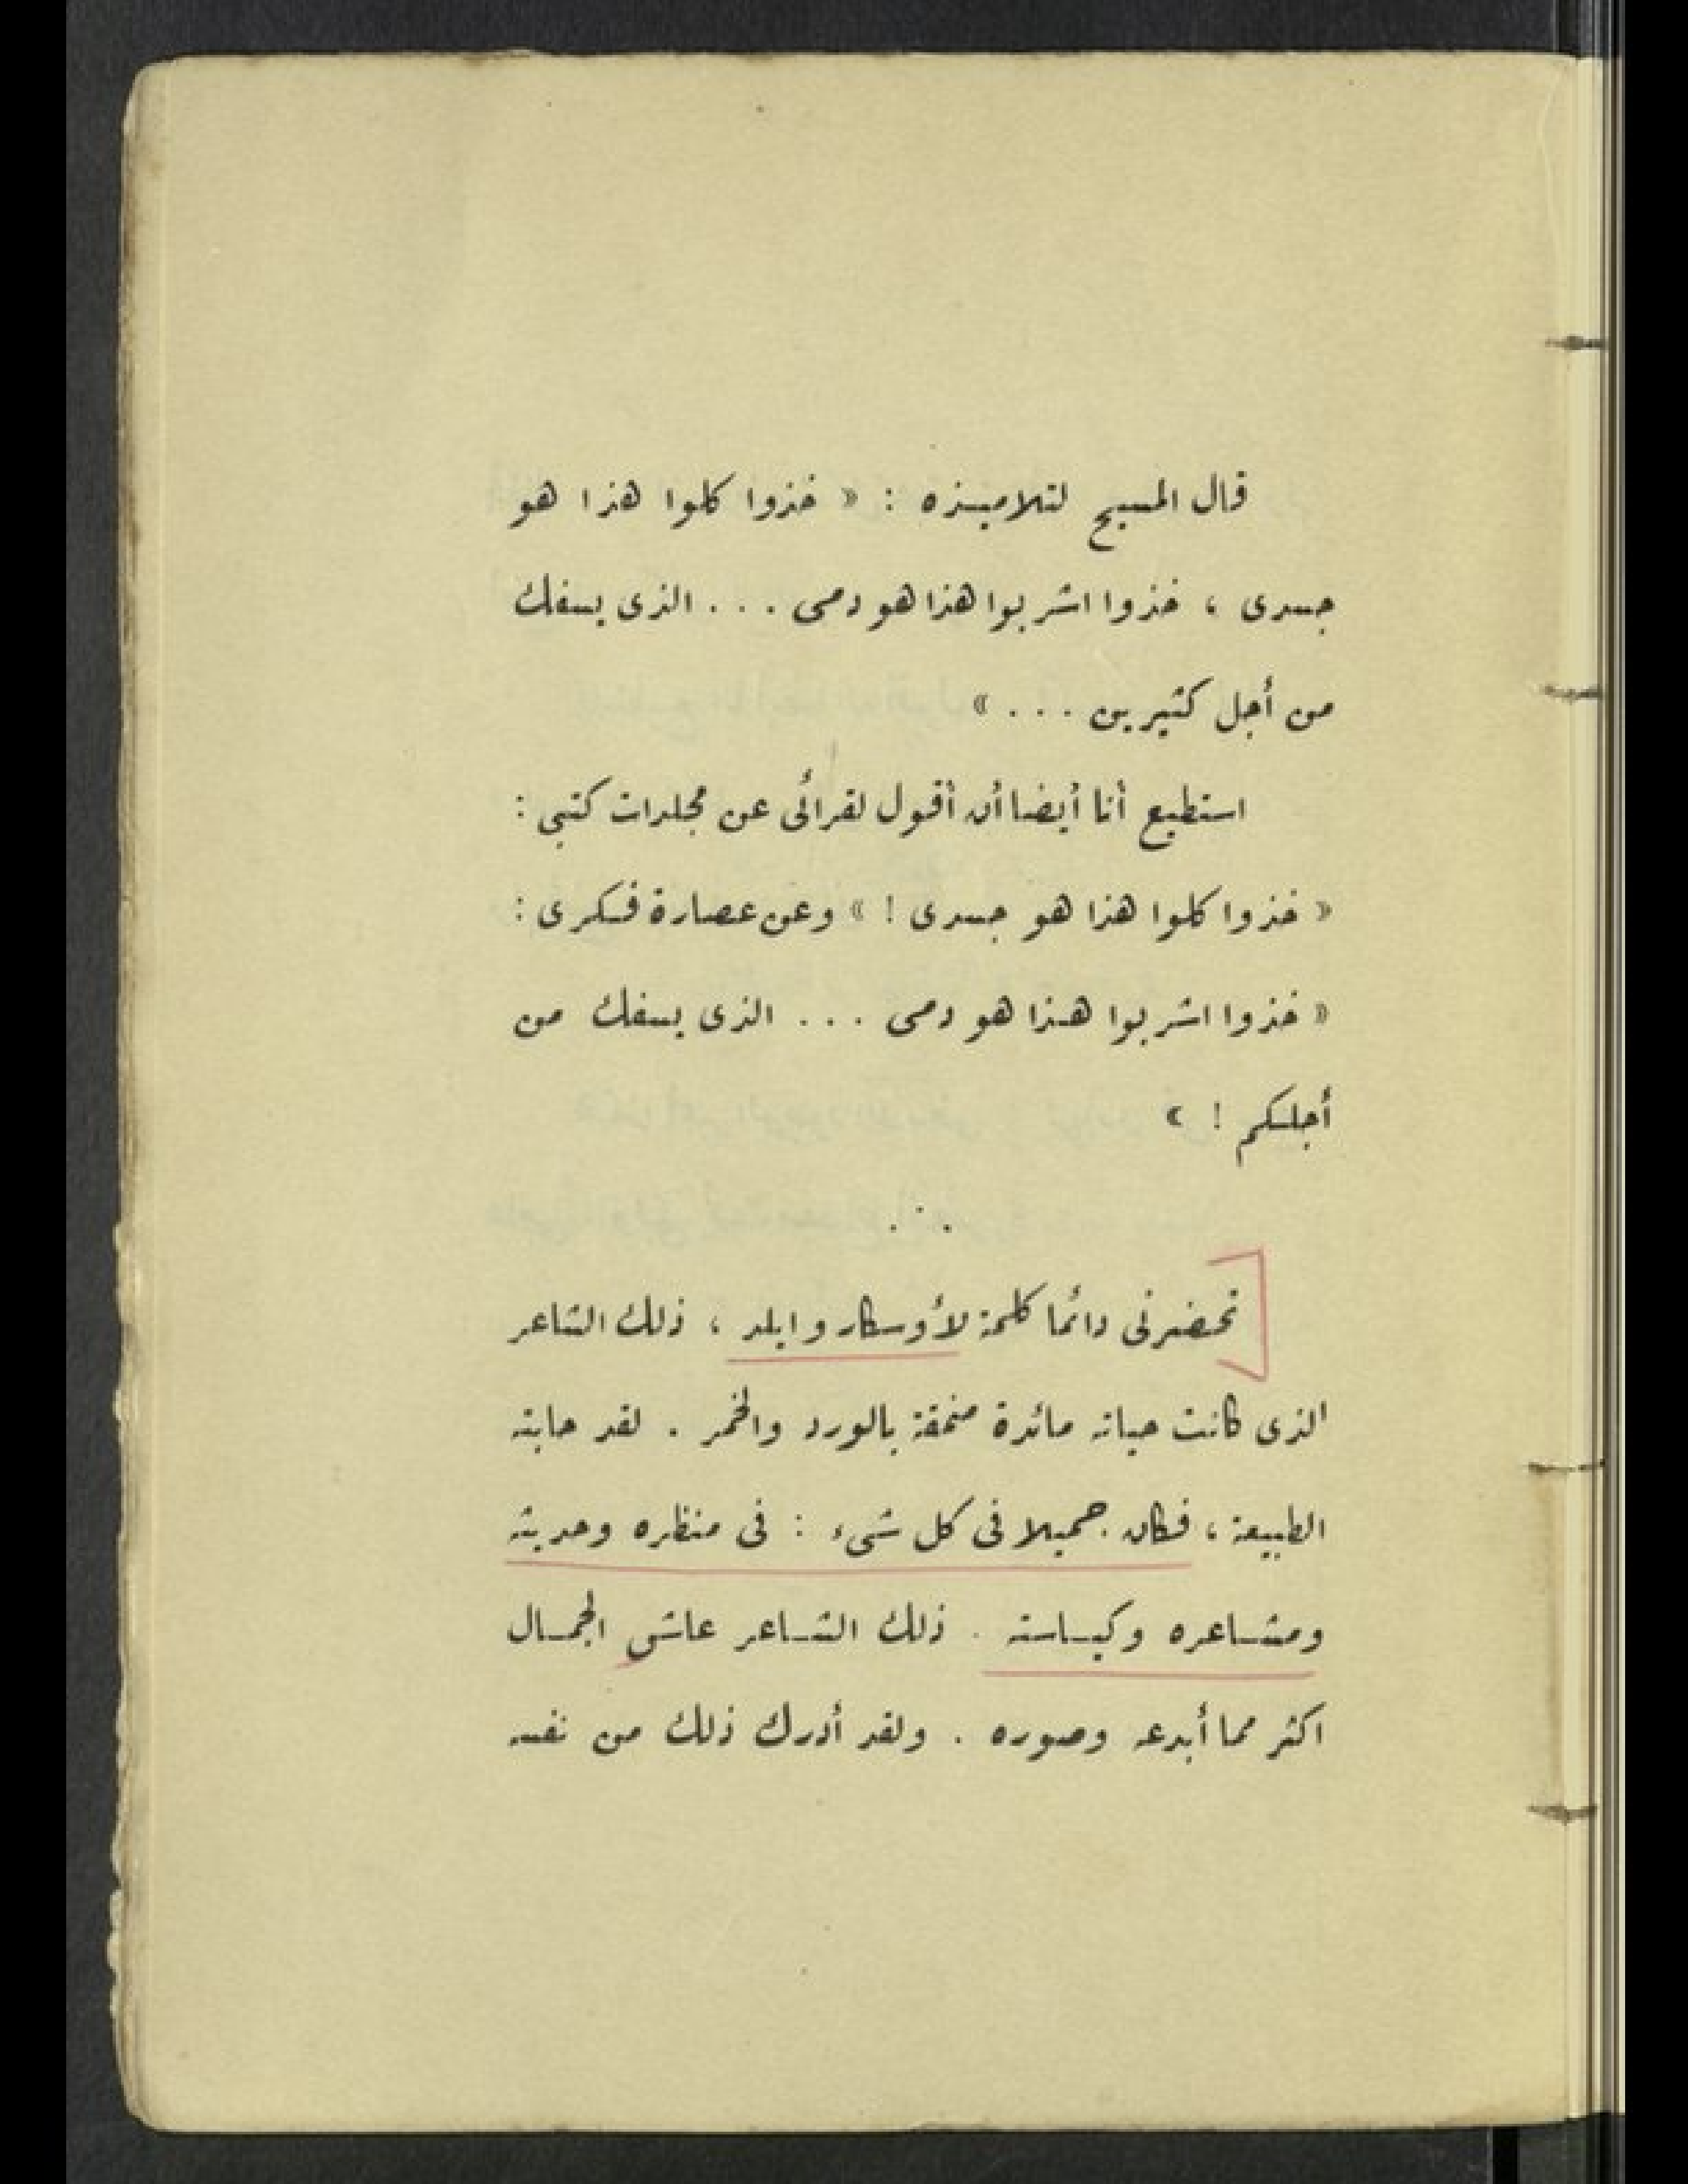 قال المسيح لتلاميذه : « خذوا كلوا هذا هو
جسدى ، خذوا اشربوا هذا هو دمى ... الذى يسفك
من أجل كثيرين ... »
استطيع أنا أيضا أن أقول لقرائى عن مجلدات كتبى :
« خذوا كلوا هذا هو جسدى ! » وعن عصارة فكرى :
« خذوا اشربوا هذا هو دمى ... الذى يسفك من
أجلكم ! »
تحضرنى دائما كلمة لأوسكار وايلد ، ذلك الشاعر
الذى كانت حياته مائدة منمقة بالورد والخمر . لقد حابته
الطبيعة ، فكان جميلا فى كل شىء : فى منظره وحديثه
ومشاعره وكياسته . ذلك الشاعر عاش الجمال
اكثر مما أبدعه وصوره . ولقد أدرك ذلك من نفسه